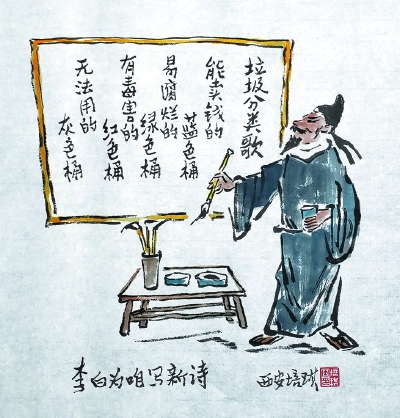 垃圾分类歌
能卖钱的
蓝色桶
易腐烂的
绿色桶
有毒害的
红色桶
无法用的
灰色桶
李白为咱写新诗
西安培琪